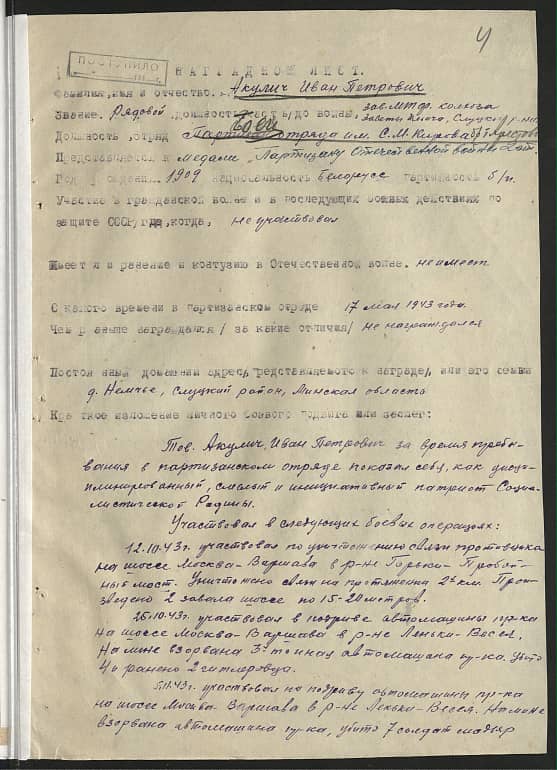 4
ПОСТУПИЛО
НАГРАДНОЙ ЛИСТ.
Фамилия, имя и отчество. Акулич Иван Петрович
Звание. Рядовой должность, часть /до войны, зав. МТФ. колхоза
Слуцк р-на
Должность, отряд боец Партизан отряда им. С.М. Кирова
Представляется к медали "Партизану Отечественной войны 2 ст.
Год рождения 1909 национальность белорусс партийность б/п.
Участие в гражданской войне и в последующих боевых действиях по
защите СССР, где, когда, не участвовал
Имеет ли ранение и контузию в Отечественной войне. не имеет
С какого времени в партизанском отряде 17 мая 1943 года.
Чем раньше награждался /за какие отличия/ не награждался
Постоянный домашний адрес, представляемого к награде/, или его семьи
д. Немчье, Слуцкий район, Минская область
Краткое изложение личного боевого подвига или заслуг:
Тов. Акулич, Иван Петрович за время пребы-
вания в партизанском отряде показал себя, как дисци-
плинированный, смелый и инициативный патриот Социа-
листической Родины.
Участвовал в следующих боевых операциях:
12.10.43г. участвовал по уничтожению связи противника
на шоссе Москва-Варшава в р-не Горько-Пробой-
ный мост. Уничтожено связи на протяжении 2х км. Про-
зведено 2 завала шоссе по 15-20 метров.
25.10.43г. участвовал в подрыве автомашины пр-ка
на шоссе Москва-Варшава в р-не Леньки-Весея.
На мине взорвана 3х тонная автомашина пр-ка. Убито
4 и ранено 2 гитлеровца.
5.11.43г. участвовал на подрыву автомашины пр-ка
на шоссе Москва-Варшава в р-не Леньки-Весея. На мине
взорвана автомашина пр-ка, убито 7 солдат мадьяр